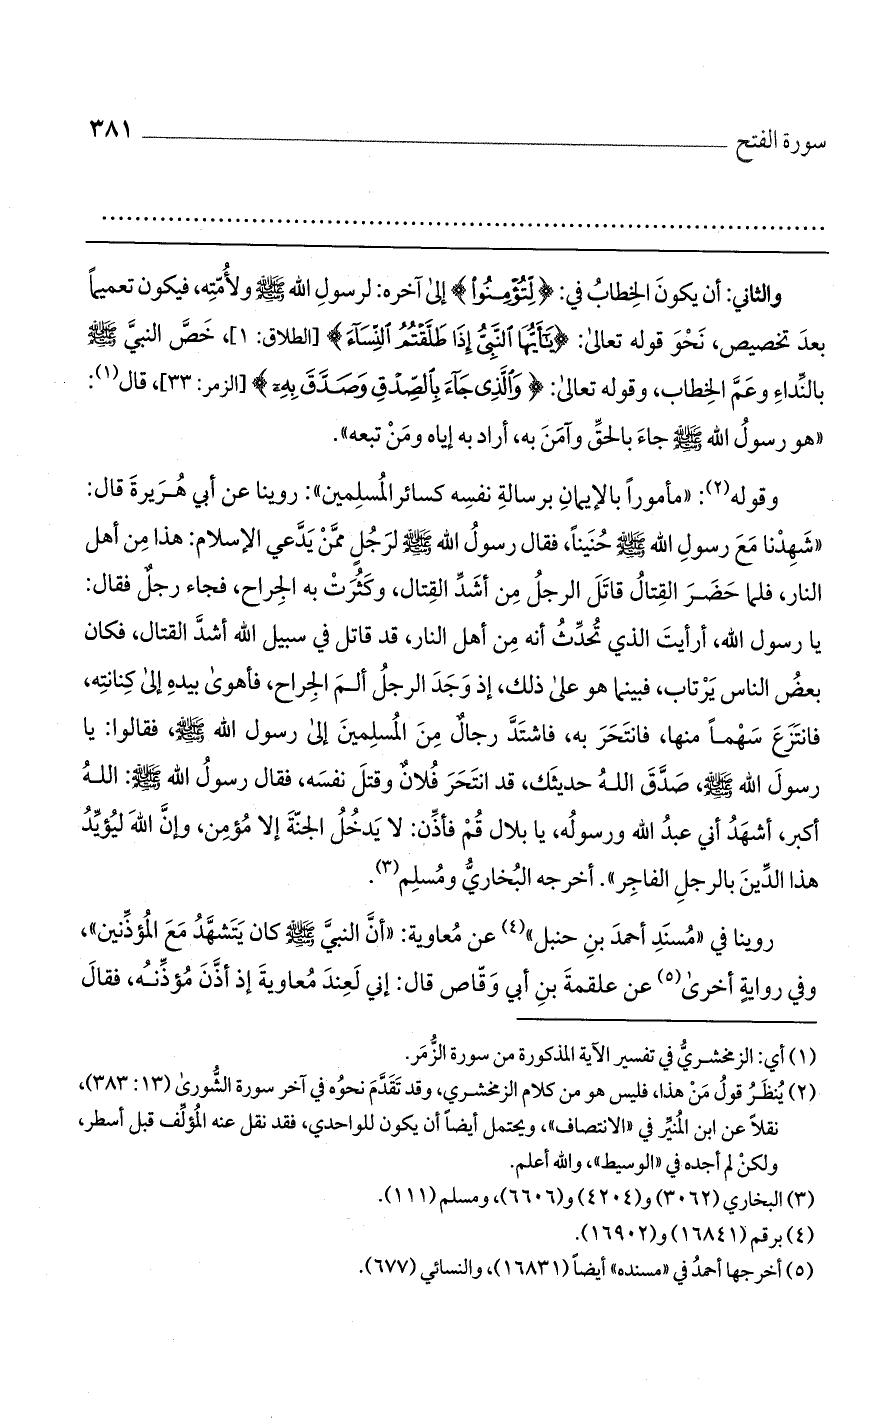 سورة الفتح ٣٨١
والثاني: أن يكونَ الخِطابُ في: ﴿لِّتُؤْمِنُوا۟﴾ إلىٰ آخره: لرسولِ الله ﷺ ولأُمّتِه، فيكون تعميماً
بعدَ تخصيص، نَحْوَ قوله تعالىٰ: ﴿يَٰٓأَيُّهَا ٱلنَّبِىُّ إِذَا طَلَّقْتُمُ ٱلنِّسَآءَ﴾ [الطلاق: ١]، خَصَّ النبيَّ ﷺ
بالنِّداءِ وعَمَّ الخِطاب، وقوله تعالىٰ: ﴿وَٱلَّذِى جَآءَ بِٱلصِّدْقِ وَصَدَّقَ بِهِۦٓ﴾ [الزمر: ٣٣]، قال(١):
«هو رسولُ الله ﷺ جاءَ بالحقِّ وآمَنَ به، أراد به إياه ومَنْ تبعه».
وقوله(٢): «مأموراً بالإيمانِ برسالةِ نفسِه كسائر المُسلِمين»: روينا عن أبي هُرَيرةَ قال:
«شَهِدْنا مَعَ رسولِ الله ﷺ حُنَيناً، فقال رسولُ الله ﷺ لرَجُلٍ ممَّنْ يَدَّعي الإسلام: هذا مِن أهل
النار، فلما حَضَرَ القِتالُ قاتَلَ الرجلُ مِن أشَدِّ القِتال، وكَثُرَتْ به الجِراح، فجاء رجلٌ فقال:
يا رسول الله، أرأيتَ الذي تُحدِّثُ أنه مِن أهل النار، قد قاتل في سبيل الله أشدَّ القتال، فكان
بعضُ الناس يَرْتاب، فبينما هو علىٰ ذلك، إذ وَجَدَ الرجلُ ألمَ الجِراح، فأهوىٰ بيدهِ إلىٰ كِنانتِه،
فانتَزَعَ سَهْماً منها، فانتَحَرَ به، فاشتَدَّ رجالٌ مِنَ المُسلِمينَ إلىٰ رسول الله ﷺ، فقالوا: يا
رسولَ الله ﷺ، صَدَّقَ اللهُ حديثَك، قد انتَحَرَ فُلانٌ وقتلَ نفسَه، فقال رسولُ الله ﷺ: اللهُ
أكبر، أشهَدُ أني عبدُ الله ورسولُه، يا بلال قُمْ فأذِّن: لا يَدخُلُ الجنّةَ إلا مُؤمِن، وإنَّ اللهَ ليُؤيِّدُ
هذا الدِّينَ بالرجلِ الفاجِر». أخرجه البُخاريُّ ومُسلِم(٣).
روينا في «مُسنَدِ أحمدَ بنِ حنبل»(٤) عن مُعاوية: «أنَّ النبيَّ ﷺ كان يَتَشهَّدُ مَعَ المُؤذِّنين»،
وفي روايةٍ أخرىٰ(٥) عن علقمةَ بنِ أبي وَقّاص قال: إني لَعِندَ مُعاويةَ إذ أذَّنَ مُؤذِّنُه، فقالَ
(١) أي: الزمخشريُّ في تفسير الآية المذكورة من سورة الزُّمَر.
(٢) يُنظَرُ قولُ مَنْ هذا، فليس هو من كلام الزمخشري، وقد تَقَدَّمَ نحوُه في آخر سورة الشُّورىٰ (١٣: ٣٨٣)،
نقلاً عن ابن المُنيِّر في «الانتصاف»، ويحتمل أيضاً أن يكون للواحدي، فقد نقل عنه المُؤلِّف قبل أسطر،
ولكنْ لم أجده في «الوسيط»، والله أعلم.
(٣) البخاري (٣٠٦٢) و(٤٢٠٤) و(٦٦٠٦)، ومسلم (١١١).
(٤) برقم (١٦٨٤١) و(١٦٩٠٢).
(٥) أخرجها أحمدُ في «مسنده» أيضاً (١٦٨٣١)، والنسائي (٦٧٧).